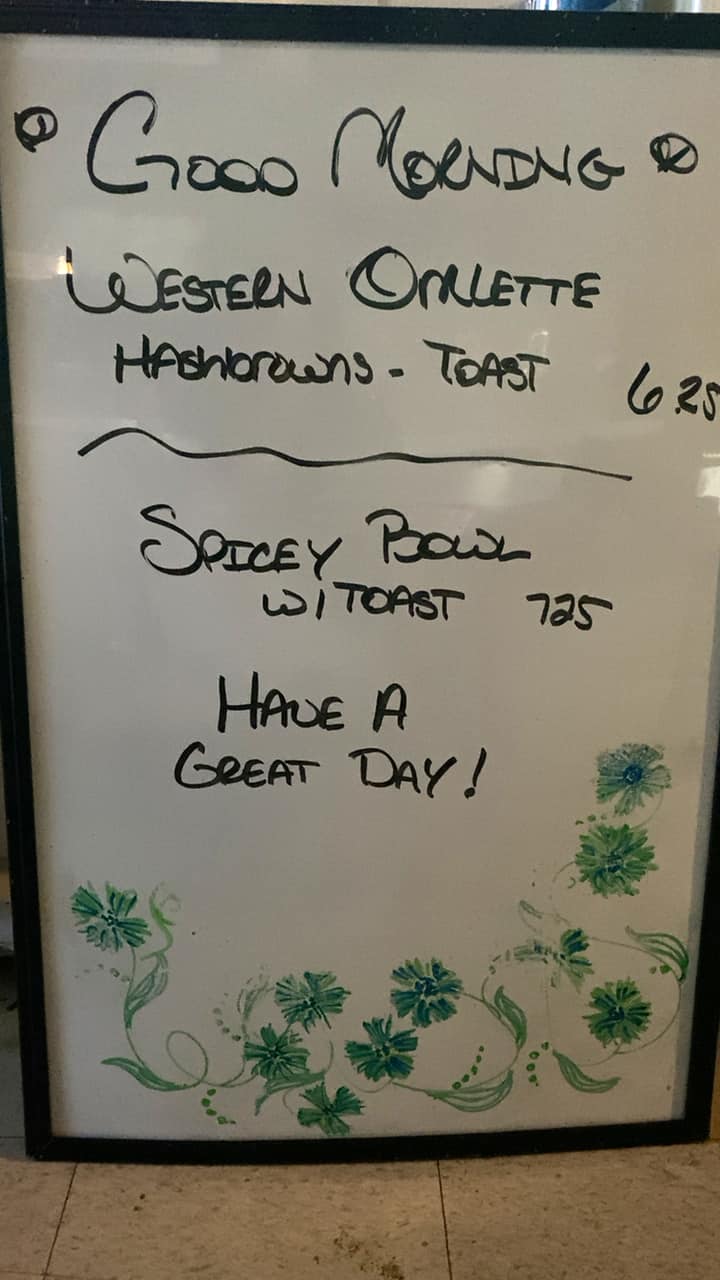 Good Morning
Western Omllette
Hashbrowns - Toast 6.25
Spicey Bowl
w/ Toast 725
Have A
Great Day!